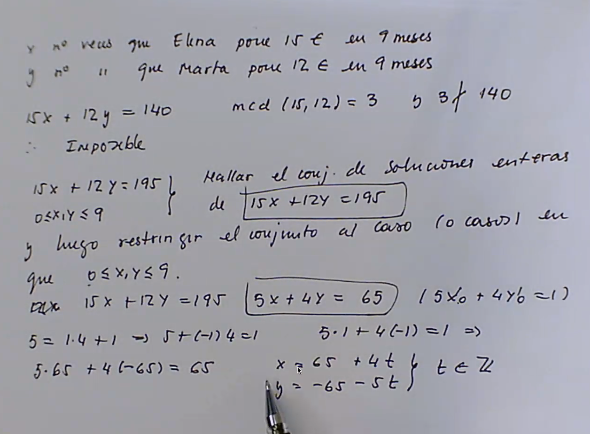 x nº veces que Elena pone 15 € en 9 meses
y nº " que Marta pone 12 € en 9 meses
15x + 12y = 140 mcd (15,12) = 3 y 3 ∤ 140
∴ Imposible
15x + 12y = 195 } Hallar el conj. de soluciones enteras
0≤x,y≤9 de 15x + 12y = 195
y luego restringir el conjunto al caso (o casos) en
que 0 ≤ x,y ≤ 9.
15x + 12y = 195 5x + 4y = 65 (5x'₀ + 4y'₀ = 1)
5 = 1·4 + 1 ⇒ 5 + (-1)4 = 1 5·1 + 4(-1) = 1 ⇒
5·65 + 4(-65) = 65 x = 65 + 4t } t ∈ ℤ
y = -65 - 5t